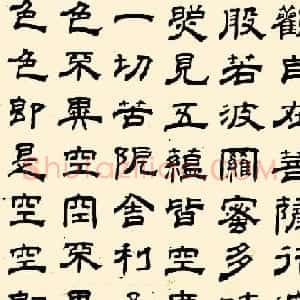 觀自在菩薩行
般若波羅蜜多時
照見五蘊皆空度
一切苦阨舍利子
色不異空空不異
色色即是空空即